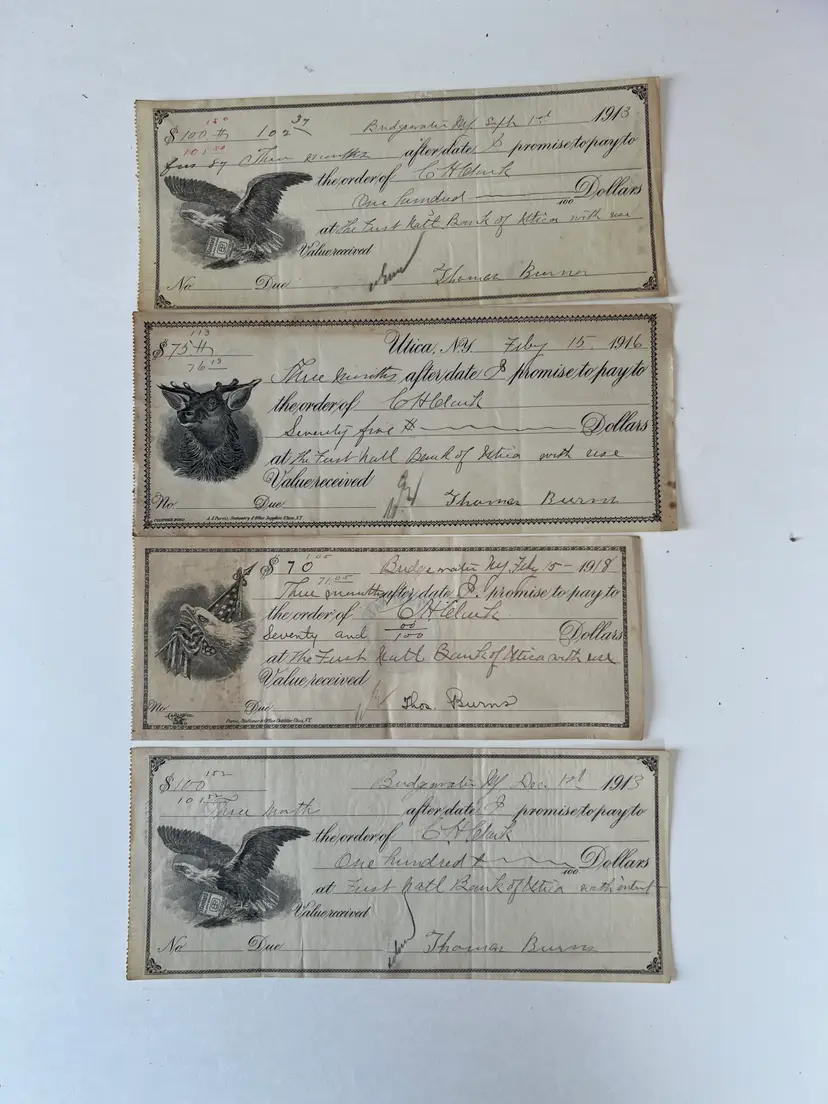 150
$100 # 102 37
Bridgewater NY. Sept 1st 1913
101.50
Three months after date I promise to pay to
the order of C H Clark
One hundred 100 Dollars
at The First Natl Bank of Utica with use
Value received
No. Due Thomas Burns
113
$75 # Utica, N.Y. Feby 15 1916
76 13
Three months after date I promise to pay to
the order of C H Clark
Seventy five # Dollars
at The First Natl Bank of Utica with use
Value received
No. Due Thomas Burns
1.05
$ 70 Bridgewater NY Feby 15 - 1918
71.05
Three months after date I promise to pay to
the order of C. H. Clark
Seventy and 00/100 Dollars
at The First Natl Bank of Utica with use
Value received
No. Due Thos. Burns
152
$100 Bridgewater NY Dec 1st 1913
101.52
Three month after date I promise to pay to
the order of C H Clark
One hundred 100 Dollars
at First Natl Bank of Utica with
Value received
No Due Thomas Burns